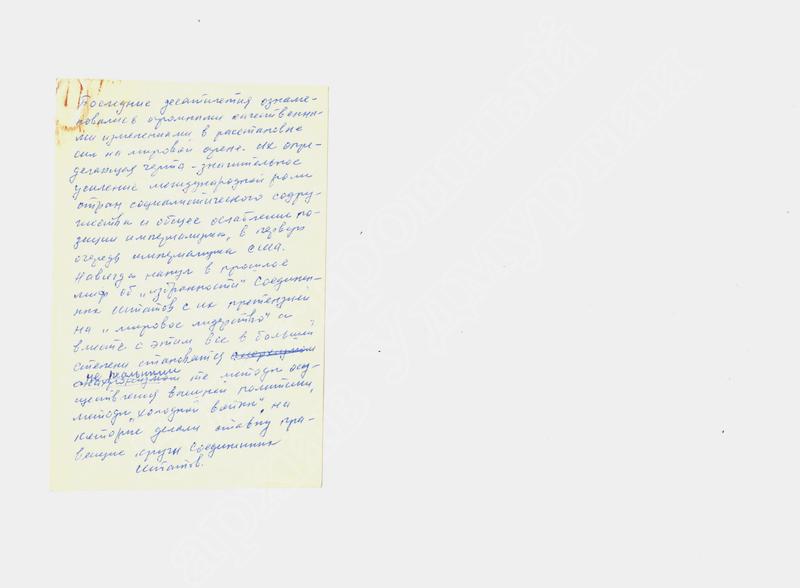 Последние десятилетия ознаме-
новались огромными качественны-
ми изменениями в расстановке
сил на мировой арене. Их опре-
деляющая черта - значительное
усиление международной роли
стран социалистического содру-
жества и общее ослабление по-
зиции империализма, в первую
очередь империализма США.
Навсегда канул в прошлое
миф об "избранности" Соединен-
ных Штатов с их претензией
на "мировое лидерство" и
вместе с этим все в большей
степени становятся
не реальными
те методы осу-
ществления внешней политики,
методы "холодной войны", на
которые делали ставку пра-
вящие круги Соединенных
Штатов.